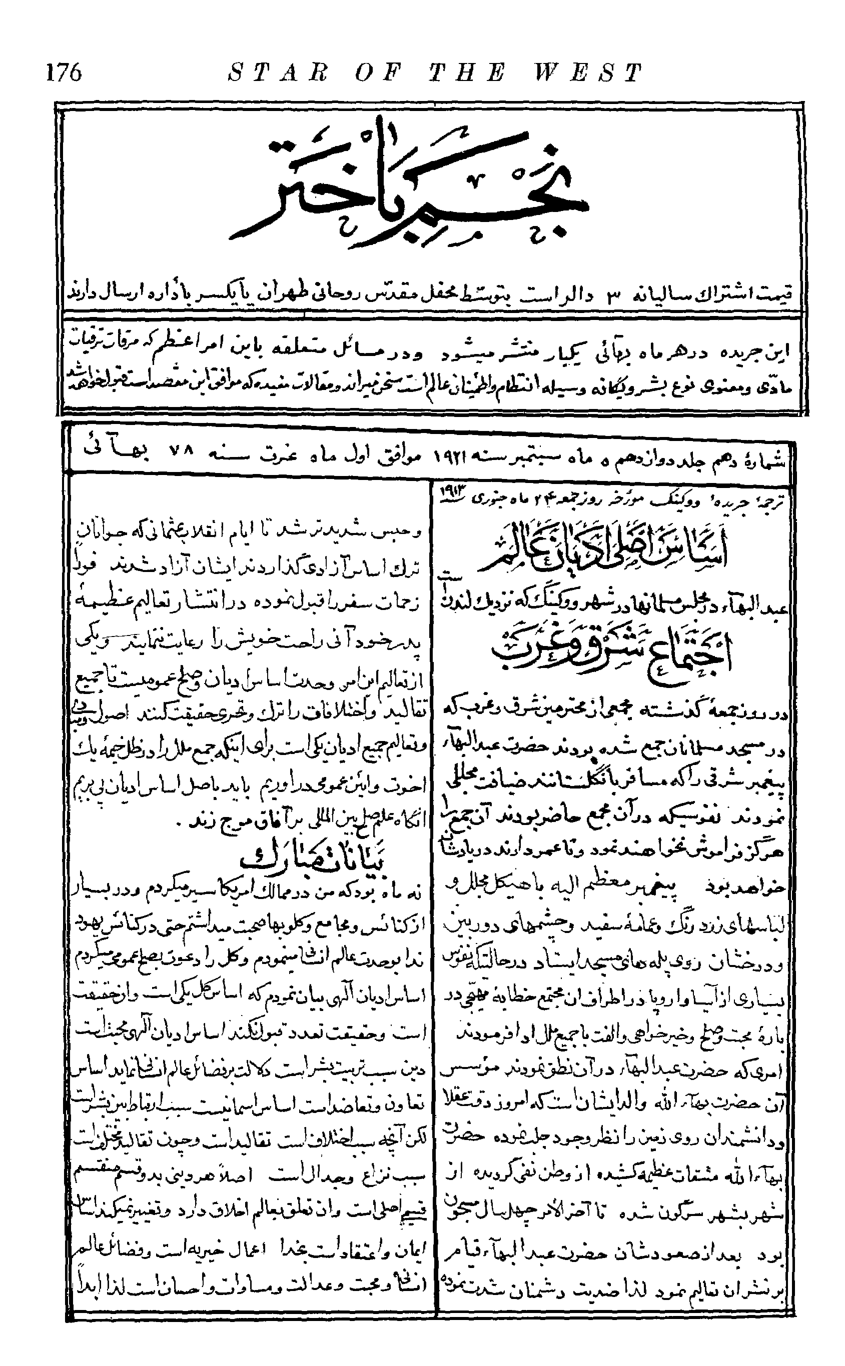 176 STAR OF THE WEST
نجم باختر
قیمت اشتراك سالیانه ۳ دالر است بتوسّط محفل مقدّس روحانی طهران یا یکسر باداره ارسال دارند
این جریده در هر ماه بهآئی یکبار منتشر میشود و در مسائل متعلقه باین امر اعظم که مرقات ترقیات
مادّی و معنوی نوع بشر و یگانه وسیله انتظام و اطمینان عالم است سخن میراند و مقالات مفیده که موافق این مقصد است قبول خواهد شد
شمارهٔ دهم جلد دوازدهم ۵ ماه سبتمبر سنه ۱۹۲۱ موافق اول ماه عزت سنه ۷۸ بهآئی
ترجمهٔ جریدهٔ ووکینک مورّخه روز جمعه ۲۴ ماه جنوری ۱۹۱۳
اساس اصلی ادیان عالم
عبدالبهآء در مجلس مسلمانها در شهر ووکینگ که نزدیك لندن است
اجتماع شرق و غرب
در روز جمعهٔ گذشته جمعی از محترمین شرق و غرب که
در مسجد مسلمانان جمع شده بودند حضرت عبدالبهآء
پیغمبر شرقی را که مسافر بانگلستانند ضیافت مجللی
نمودند نفوسیکه در آن مجمع حاضر بودند آن جمع را
هرگز فراموش نخواهند نمود و تا عمر دارند در یادشان
خواهد بود پیغمبر معظم الیه با هیکل مجلل و
لباسهای زرد رنگ و عمامهٔ سفید و چشمهای دوربین
و درخشان روی پله های مسجد ایستاد در حالتیکه نفوس
بسیاری از آسیا و اروپا در اطراف ان مجتمع خطابهٔ مهیّجی در
بارهٔ محبت و صلح و خیرخواهی و الفت با جمیع ملل ادا فرمودند
امری که حضرت عبدالبهآء در آن نطق نمودند مؤسس
آن حضرت بهآءالله والد ایشان است که امروز دقت عقلا
و دانشمندان روی زمین را نظر وجود جلب نموده حضرت
بهآءالله مشقات عظیمه کشیده از وطن نفی گردیده از
شهر بشهر سرگون شده تا آخر الامر چهل سال مسجون
بود بعد از صعودشان حضرت عبدالبهآء قیام
بر نشر ان تعالیم نمود لذا ضدیت دشمنان شدت نموده
و حبس شدیدتر شد تا ایام انقلاب عثمانی که جوانان
ترك اساس آزادی گذاردند ایشان آزاد شدند فوراً
زحمات سفر را قبول نموده در انتشار تعالیم عظیمهٔ
پدر خود آنی راحت خویش را رعایت ننمایند و یکی
از تعالیم این امر وحدت اساس ادیان و صلح عمومیست تا جمیع
تقالید و اختلافات را ترك و تحری حقیقت کنند اصول
و تعالیم جمیع ادیان یکی است برای اینکه جمع ملل را در ظل خیمهٔ یك
اخوت و ایین عمومی در اوریم باید باصل اساس ادیان پی بریم
انگاه علم صلح بین المللی بر آفاق موج زند .
بیانات مبارك
نه ماه بود که من در ممالك امریکا سیر میکردم و در بسیار
از کنائس و مجامع و کلوبها صحبت میداشتم حتی در کنائس یهود
ندا بوحدت عالم انسانی مینمودم و کل را دعوت بصلح عمومی میکردم
اساس ادیان آلهی بیان نمودم که اساس کل یکی است و ان حقیقت
است و حقیقت تعدد قبول نکند اساس ادیان آلهی محبت است
دین سبب تربیت بشر است دلالت بر فضائل عالم انسانی نماید اساس
تعاون و تعاضد است اساس اسمانیست سبب ارتباط بین بشر است
لکن آنچه سبب اختلاف است تقالید است و چون تقالید مختلف است
سبب نزاع و جدال است اصلاً هر دینی بدو قسم منقسم
قسمی اصلی است و ان تعلق بعالم اخلاق دارد و تغییر نمیکند اساس
ایمان و اعتقاد است بخدا اعمال خیریه است و فضائل عالم
انسانی و محبت و عدالت و مساوات و احسان است لذا ابداً